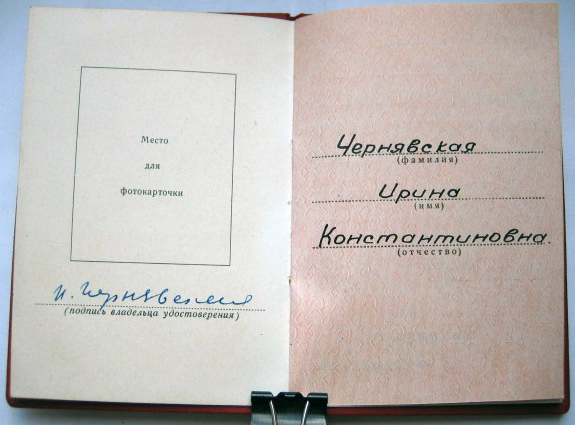 Место
для
фотокарточки
И. Чернявская
(подпись владельца удостоверения)
Чернявская
(фамилия)
Ирина
(имя)
Константиновна.
(отчество)